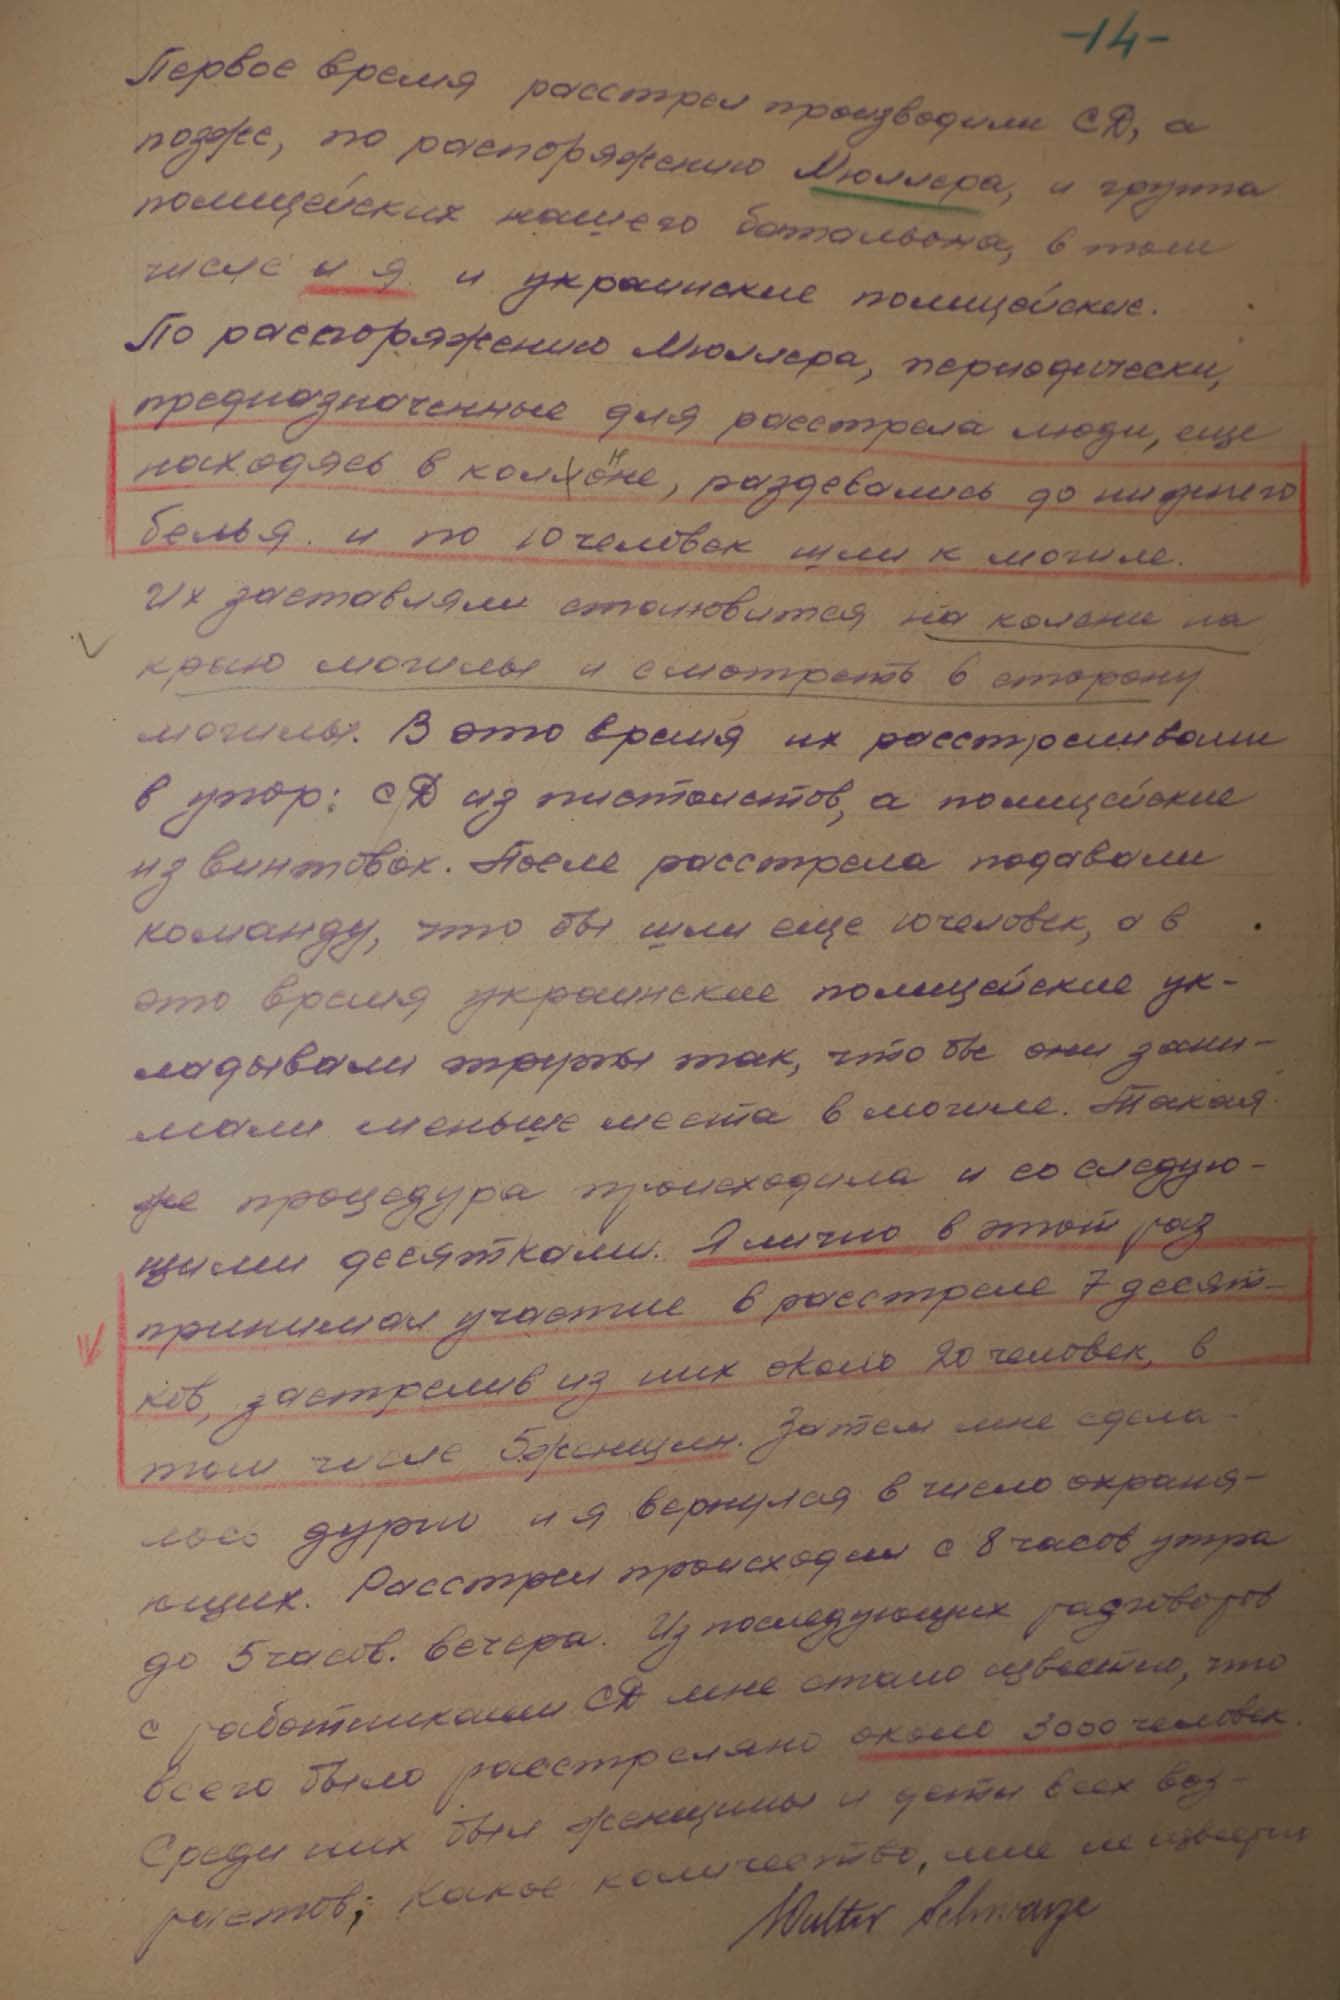 -14-
Первое время расстрел производили СД, а
позже, по распоряжению Мюллера, и группа
полицейских нашего батальона, в том
числе и я и украинские полицейские.
По распоряжению Мюллера, периодически,
предназначенные для расстрела люди, еще
находясь в колоне, раздевались до нижнего
белья и по 10 человек шли к могиле.
Их заставляли становится на колени на
краю могилы и смотреть в сторону
могилы. В это время их расстреливали
в упор: СД из пистолетов, а полицейские
из винтовок. После расстрела подавали
команду, что бы шли еще 10 человек, а в
это время украинские полицейские ук-
ладывали трупы так, что бы они зани-
мали меньше места в могиле. Такая
же процедура происходила и со следую-
щими десятками. Я лично в этот раз
принимал участие в расстреле 7 десят-
ков, застрелив из них около 20 человек, в
том числе 5 женщин. Затем мне сдела-
лось дурно и я вернулся в число охраня-
ющих. Расстрел происходил с 8 часов утра
до 5 часов. вечера. Из последующих разговоров
с работниками СД мне стало известно, что
всего было расстреляно около 3000 человек.
Среди них был женщины и дети всех воз-
растов; Какое количество, мне не известно
Walter Schwarze